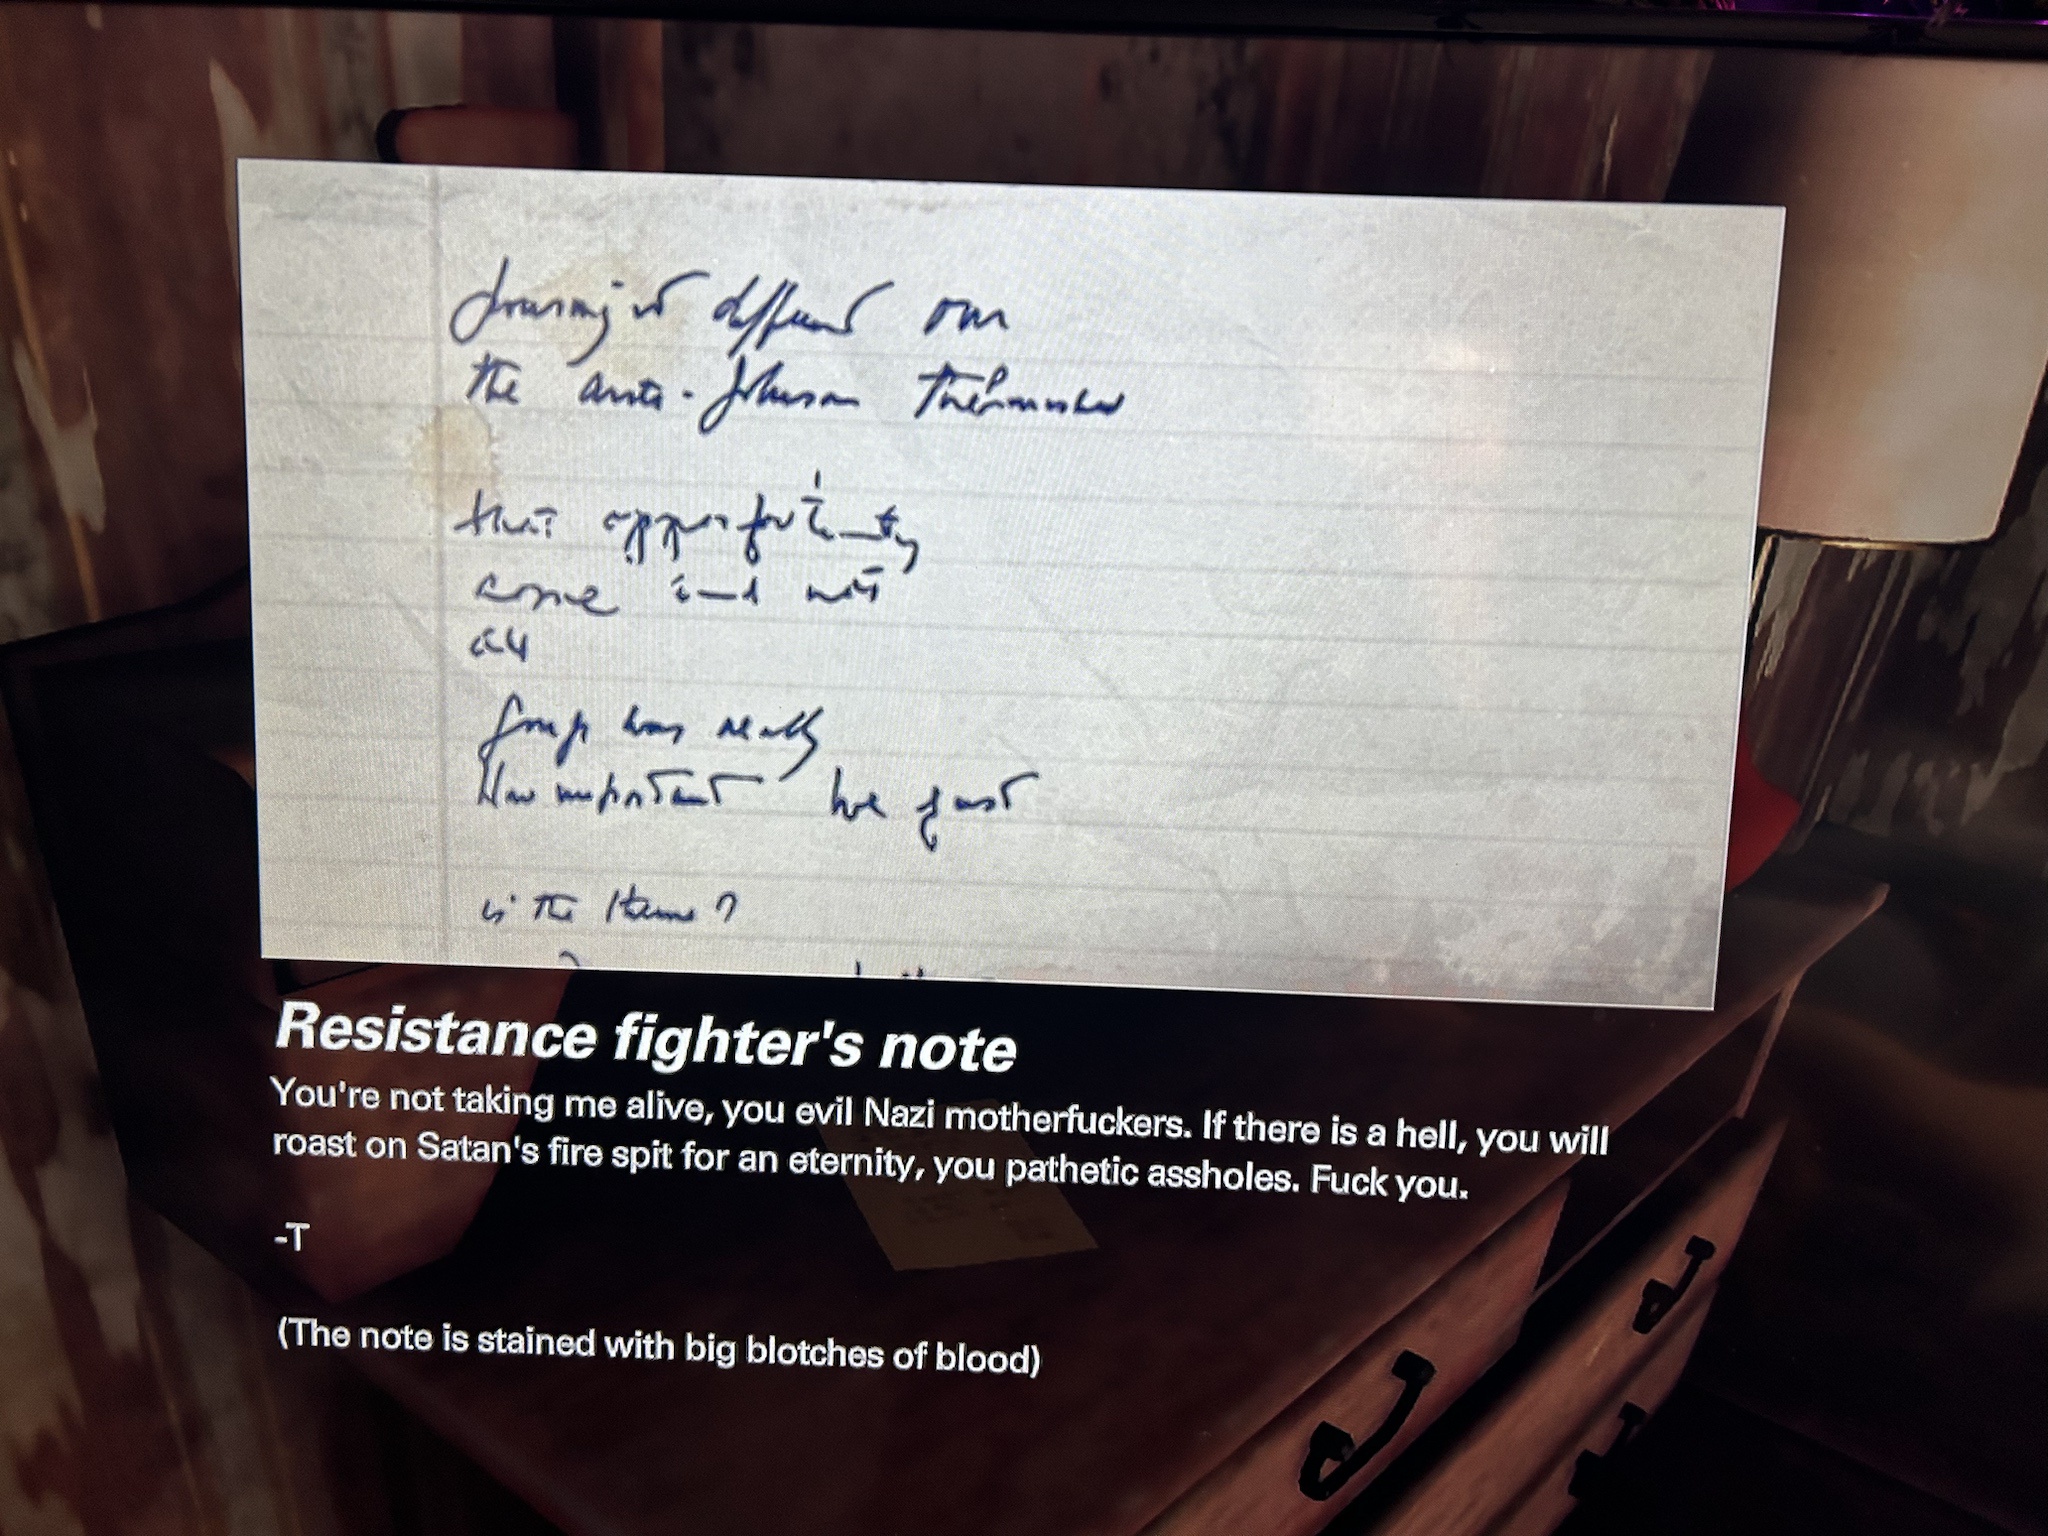 the anti-Johnson
that
come and not
all
group was really
How important we just
is the theme?
Resistance fighter's note
You're not taking me alive, you evil Nazi motherfuckers. If there is a hell, you will
roast on Satan's fire spit for an eternity, you pathetic assholes. Fuck you.
-T
(The note is stained with big blotches of blood)